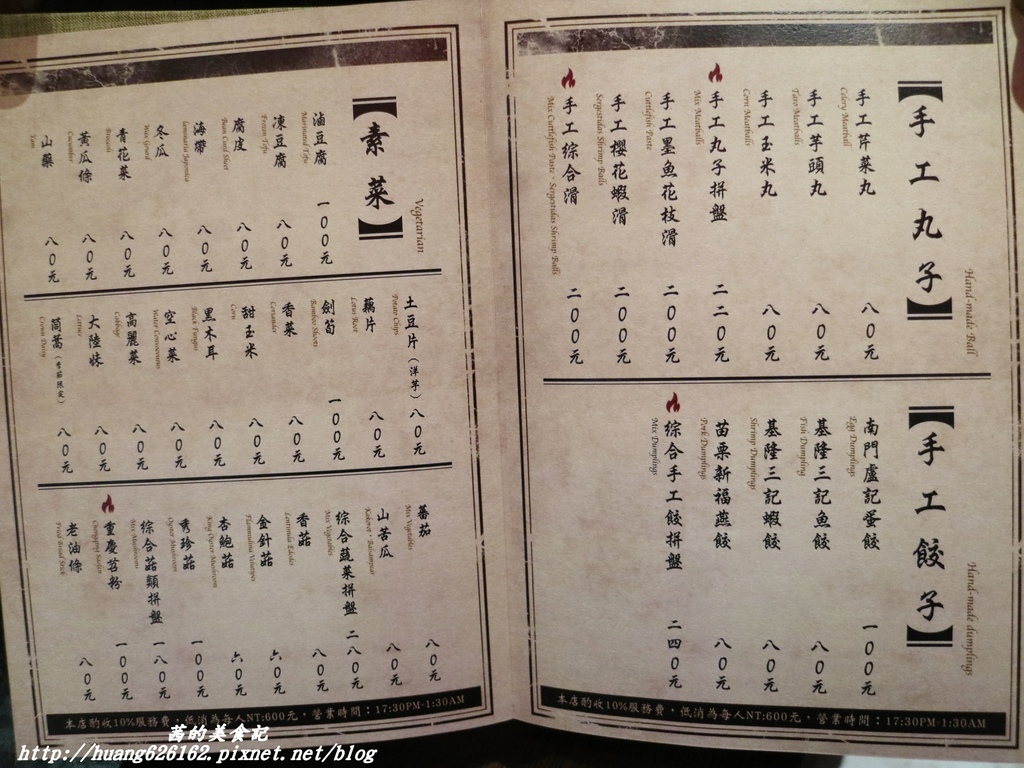 【手工丸子】
Hand-made Ball
手工芹菜丸 八0元
Celery Meatball
手工芋頭丸 八0元
Taro Meatballs
手工玉米丸 八0元
Corn Meatballs
手工丸子拼盤 二二0元
Mix Meatballs
手工墨魚花枝滑 二00元
Cuttlefish Paste
手工櫻花蝦滑 二00元
Sergestidas Shrimp Balls
手工綜合滑 二00元
Mix Cuttlefish Paste、Sergestidas Shrimp Balls
【手工餃子】
Hand-made dumplings
南門盧記蛋餃 一00元
Egg Dumplings
基隆三記魚餃 八0元
Fish Dumpling
基隆三記蝦餃 八0元
Shrimp Dumplings
苗栗新福燕餃 八0元
Pork Dumplings
綜合手工餃拼盤 二四0元
Mix Dumplings
本店酌收10%服務費，低消為每人NT:600元，營業時間：17:30PM-1:30AM
【素菜】
Vegetarian
滷豆腐 一00元
Marinated Tofu
凍豆腐 八0元
Frozen Tofu
腐皮 八0元
Bean Curd Sheet
海帶 八0元
laminaria Japonica
冬瓜 八0元
Wax Gourd
青花菜 八0元
Broccoli
黃瓜條 八0元
Cucumber
山藥 八0元
Yam
土豆片（洋芋） 八0元
Potato Chips
藕片 八0元
Lotus Root
劍筍 一00元
Bamboo Shoots
香菜 八0元
Coriander
甜玉米 八0元
Corn
黑木耳 八0元
Black Fungus
空心菜 八0元
Water Convolvulus
高麗菜 八0元
Cabbage
大陸妹 八0元
Lettuce
茼蒿（季節限定） 八0元
Crown Daisy
蕃茄 八0元
Mix Vegetables
山苦瓜 八0元
綜合蔬菜拼盤 二八0元
Mix Vegetables
香菇 八0元
Lentinula Edodes
金針菇 六0元
Flammulina Velutipes
杏鮑菇 六0元
King Oyster Mushroom
秀珍菇 一00元
Oyster Mushroom
綜合菇類拼盤 一八0元
Mix Mushrooms
重慶苕粉 一00元
老油條 八0元
Fried Bread Stick
本店酌收10%服務費，低消為每人NT:600元，營業時間：17:30PM-1:30AM
茜的美食記
http://huang626162.pixnet.net/blog